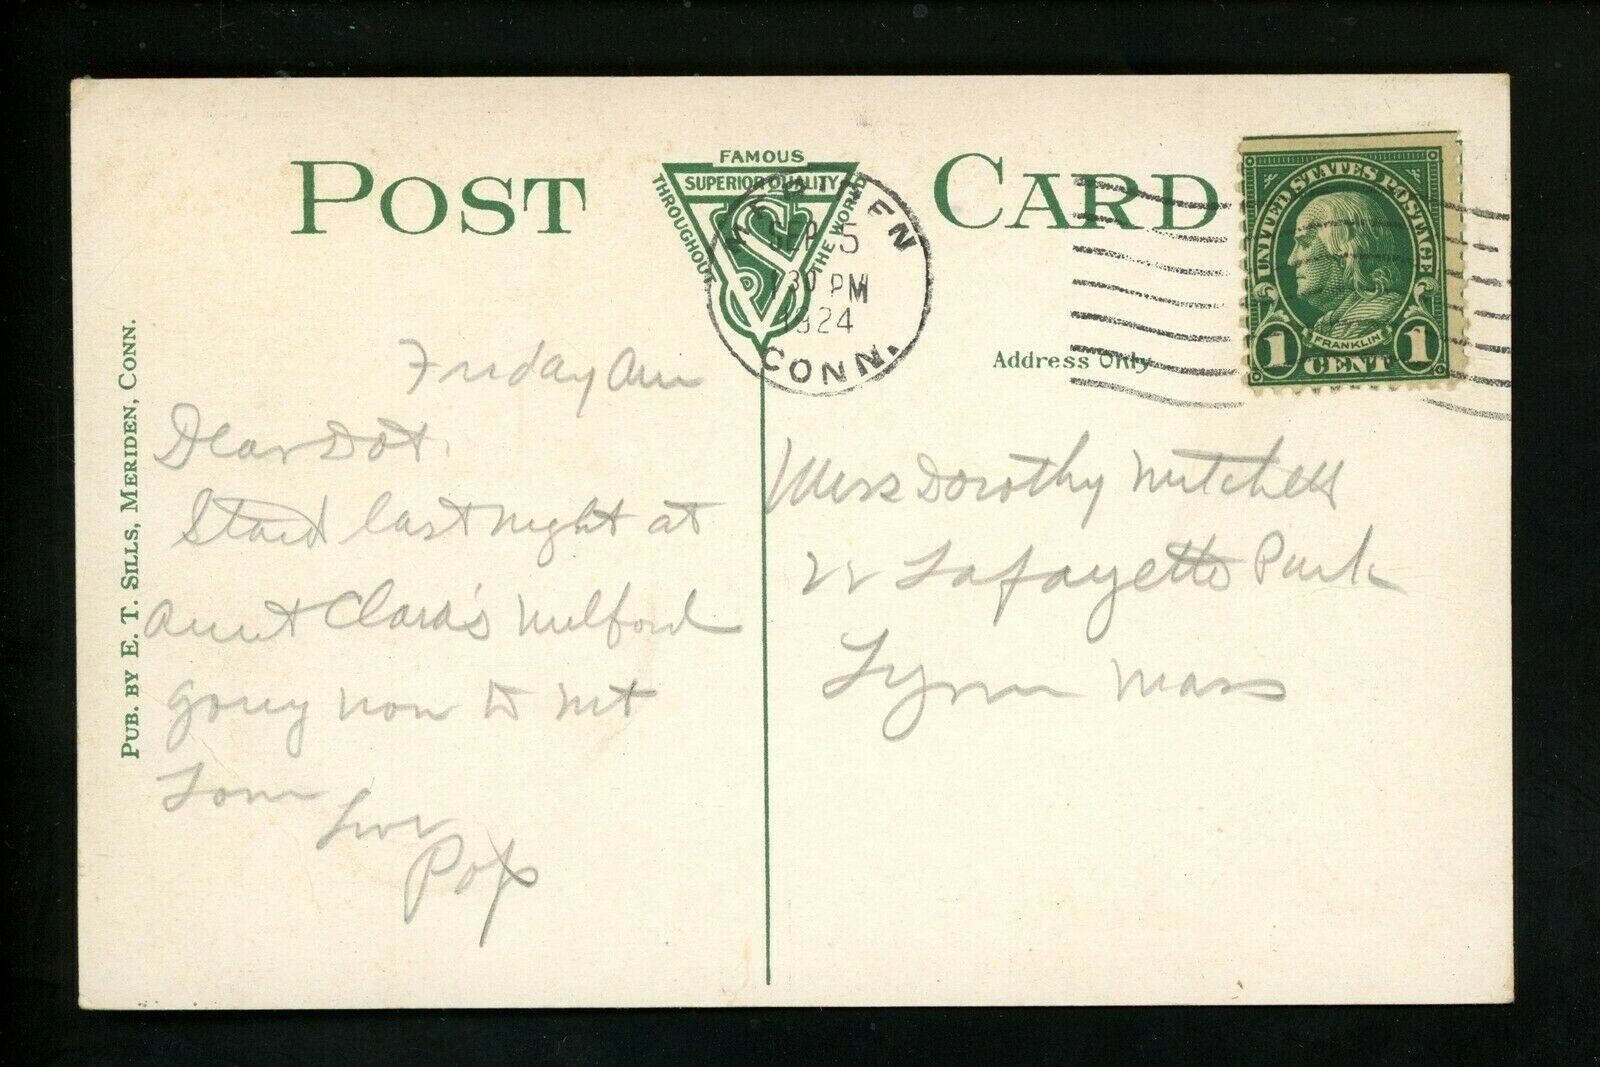 POST CARD
FAMOUS
SUPERIOR QUALITY
THROUGHOUT
THE WORLD
MERIDEN
SEP 5
1 30 PM
1924
CONN.
UNITED STATES POSTAGE
FRANKLIN
1 CENT 1
Address Only
PUB. BY E. T. SILLS, MERIDEN, CONN.
Friday Am
Dear Dot.
Staid last night at
Aunt Clara's Milford
going now to Mt
Tom
Love
Pop
Miss Dorothy Mitchell
22 Lafayette Park
Lynn Mass